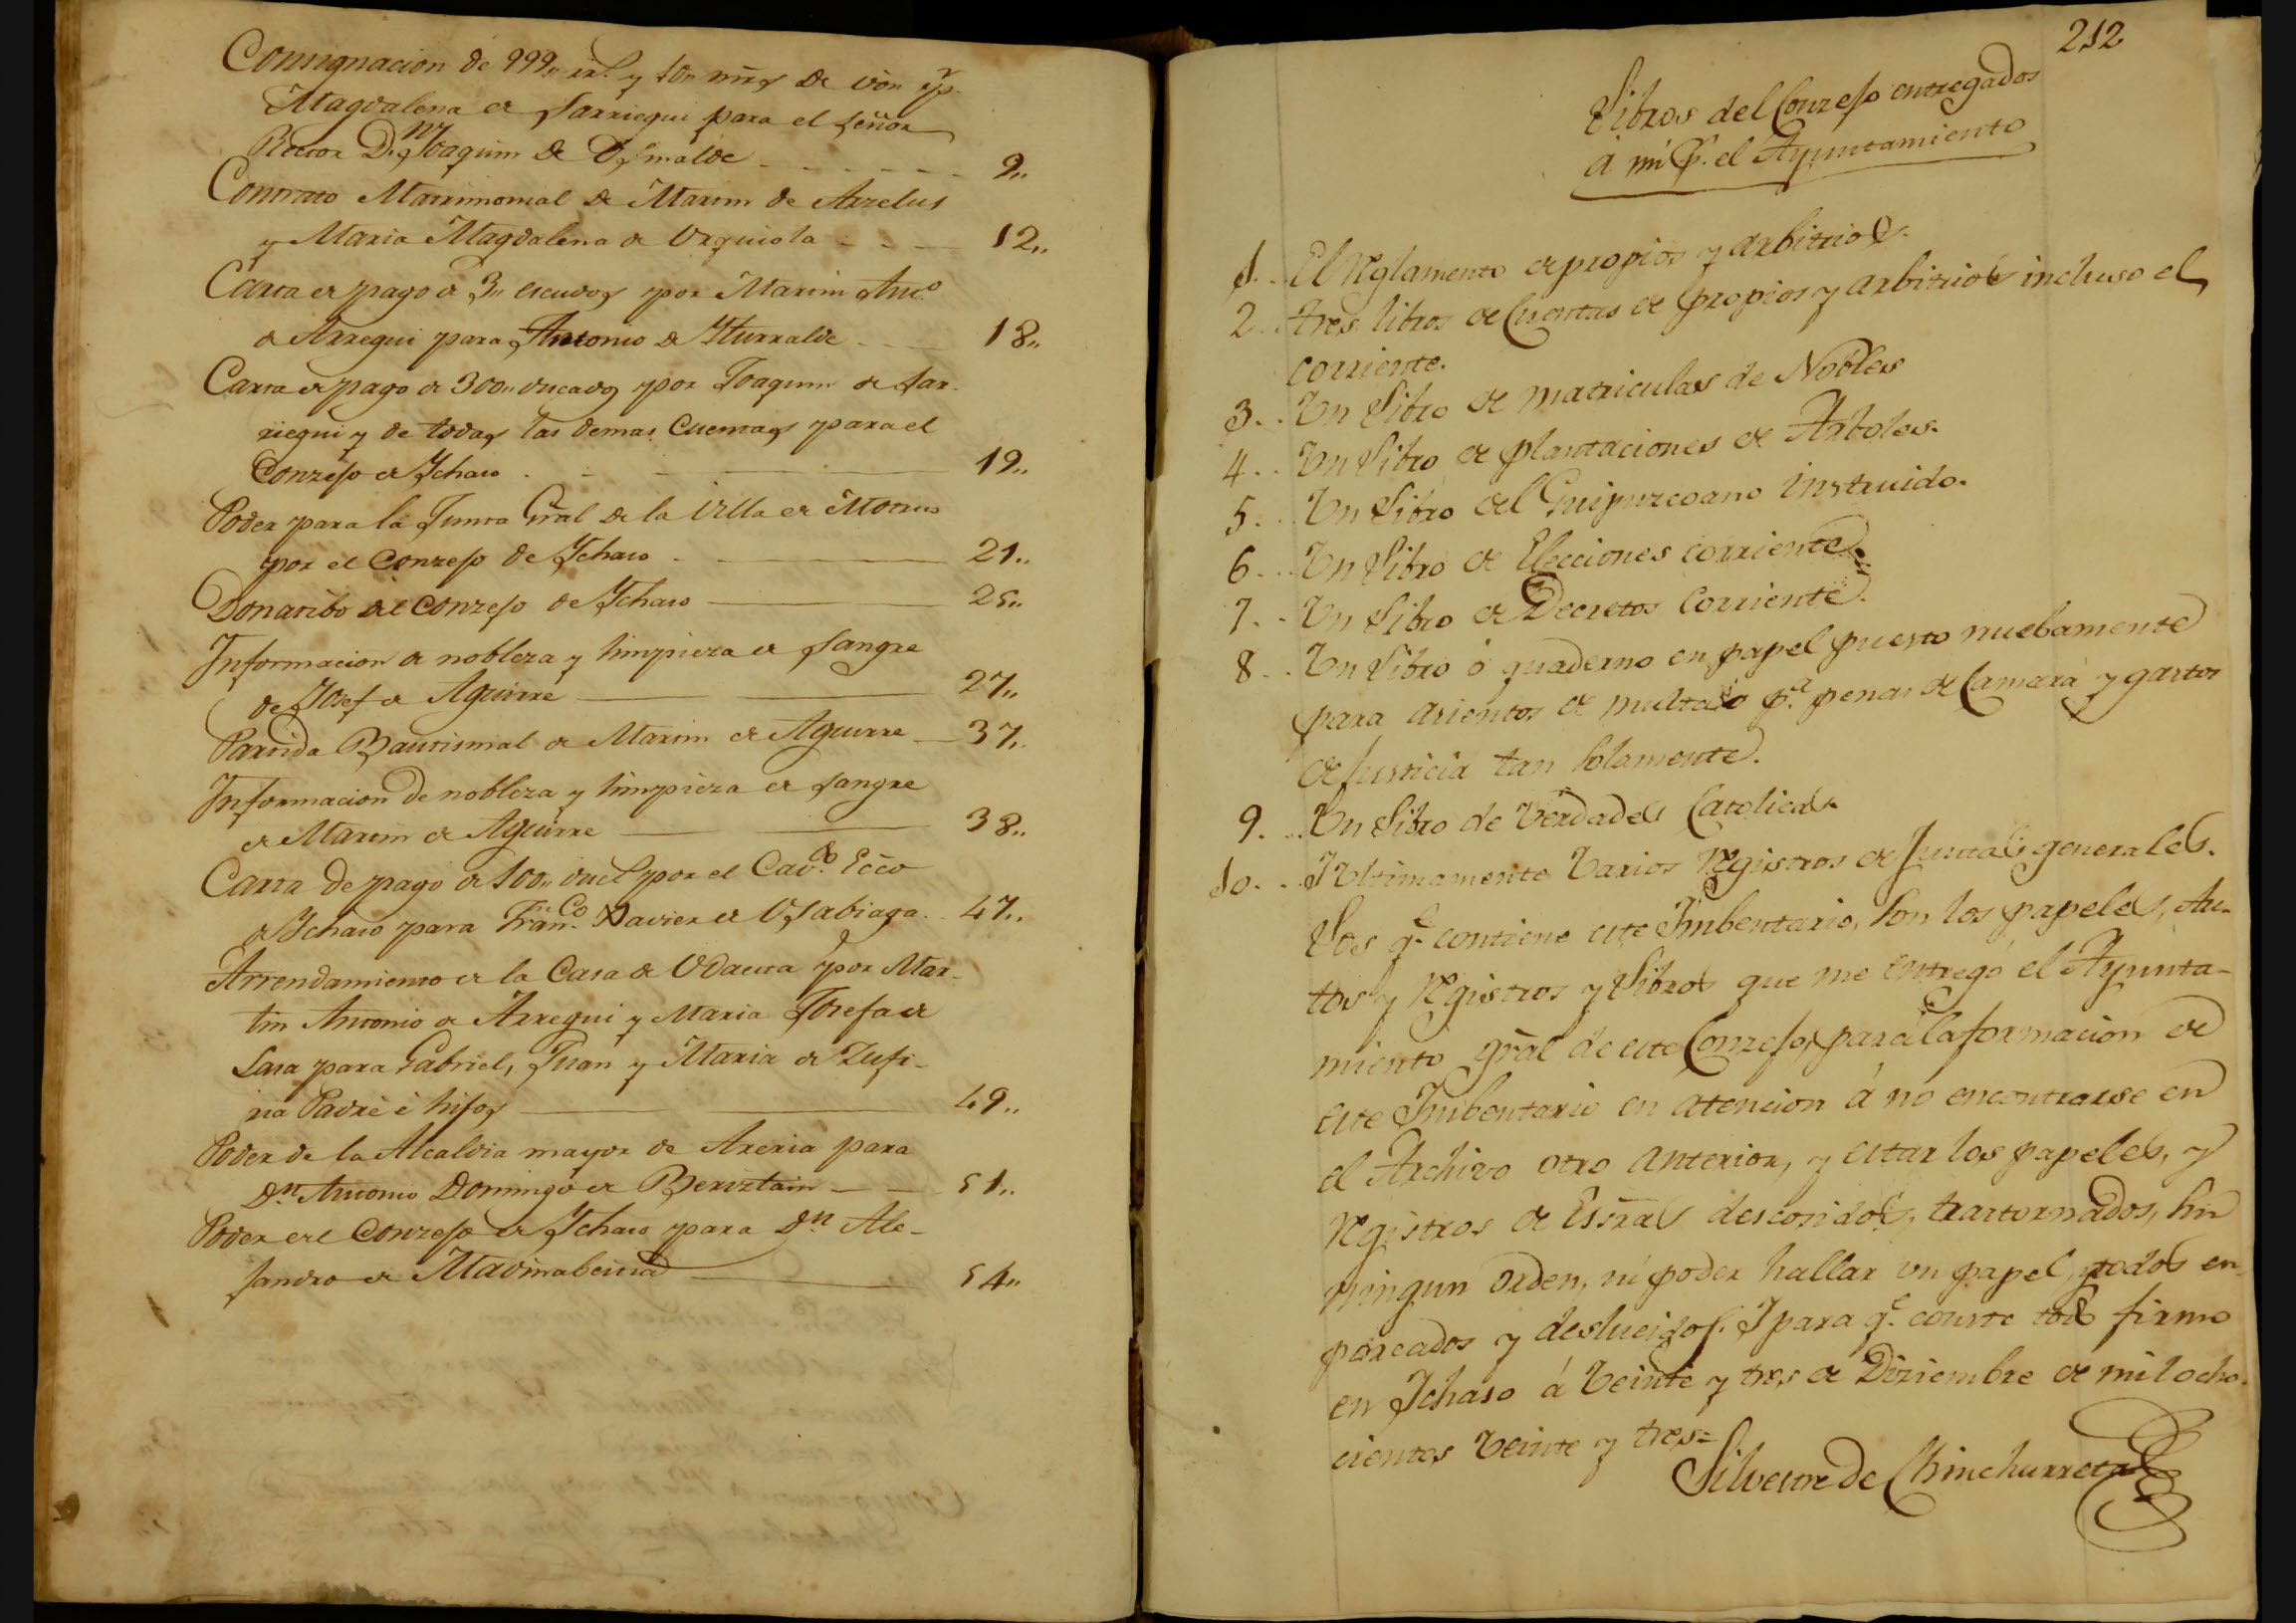 Consignacion de 999,, rrs. y 10,, mrs de von pr.
Magdalena de Sarriegui para el señor
Rector Dn Joaquim de Usnalde 9,,
Contrato Matrimonial de Martin de Arzelus
y Maria Magdalena de Urquiola 12,,
Carta de pago de 3,, escudos por Martin Anto
de Arregui para Antonio de Yturralde 18,,
Carta de pago de 300,, ducados por Joaquim de Sar-
riegui y de todas las demas cuentas para el
Conzejo de Ychaso 19,,
Poder para la Junta Gral de la Villa de Motrico
por el Conzejo de Ychaso 21,,
Donatibo del Conzejo de Ychaso 25,,
Informacion de nobleza y limpieza de sangre
de Josef de Aguirre 27,,
Partida Bautismal de Martin de Aguirre 37,,
Informacion de nobleza y limpieza de sangre
de Martin de Aguirre 38,,
Carta de pago de 100,, ducs por el Cavdo Ecco
de Ychaso para Franco Xavier de Usabiaga 47,,
Arrendamiento de la Casa de Udaeta por Mar-
tin Antonio de Arregui y Maria Josefa de
Lasa para Gabriel, Juan y Maria de Zufi-
ria Padre è hijos 49,,
Poder de la Alcaldia mayor de Areria para
Dn Antonio Domingo de Beriztain 51,,
Poder del Conzejo de Ychaso para Dn Ale-
jandro de Madinabeitia 54,,
212
Libros del Conzejo entregados
á mi pr. el Ayuntamiento
1. El Reglamento de propios y arbitrios.
2. tres libros de Cuentas de propios y arbitrios incluso el
corriente.
3. Un Libro de matriculas de Nobles
4. Un Libro de plantaciones de Arboles.
5. Un Libro del Guipuzcoano instruido.
6. Un Libro de Elecciones corriente.
7. Un Libro de Decretos Corriente.
8. Un Libro ó quaderno en papel puesto nuebamente
para asientos de multas o pa. penas de Camara y gastos
de Justicia tan solamente.
9. Un Libro de Verdades Catolicas.
10. Y Ultimamente Varios Registros de Juntas generales.
Los qe. contiene este Imbentario, son los papeles, Au-
tos y Registros y Libros que me entregó el Ayunta-
miento gral de este Conzejo, para la formacion de
este Imbentario en atencion á no encontrarse en
el Archivo otro anterior, y estar los papeles, y
Registros de Essras descosidos, trastornados, sin
ningun orden, ni poder hallar un papel, y todos en-
porcados y deslucidos. Y para qe. conste todo firmo
en Ychaso á Veinte y tres de Diziembre de mil ocho-
cientos Veinte y tres=
Silvestre de Chinchurreta